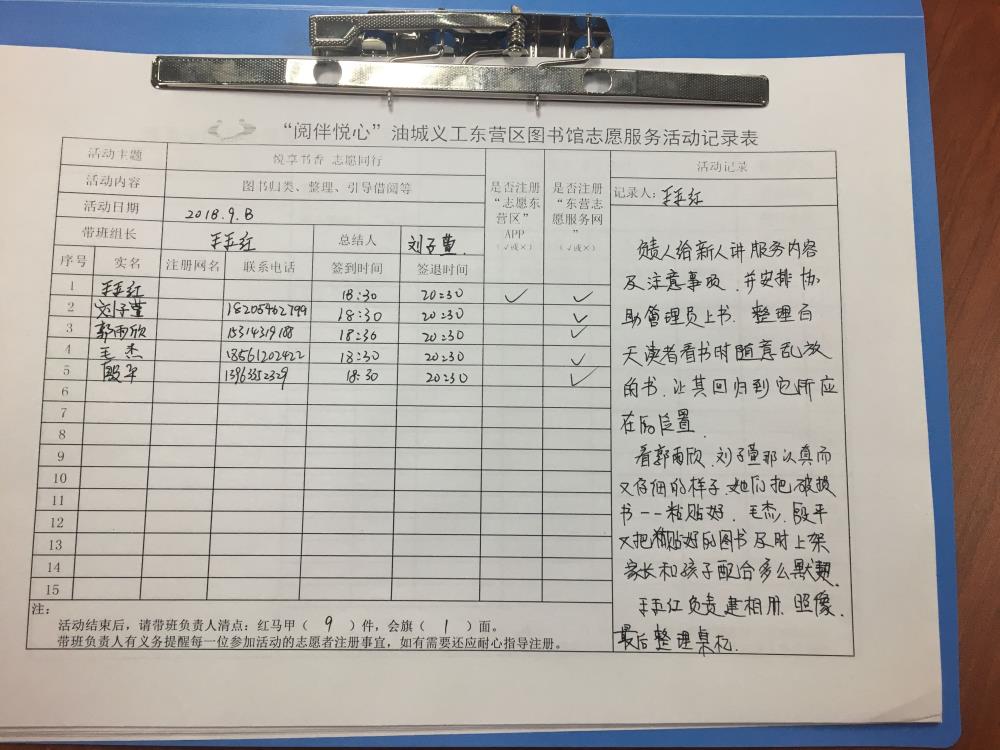 “阅伴悦心”油城义工东营区图书馆志愿服务活动记录表
活动主题 悦享书香 志愿同行
活动内容 图书归类、整理、引导借阅等
活动日期 2018.9.13
带班组长 王玉红 总结人 刘子萱.
是否注册“志愿东营区”APP（√或×）
是否注册“东营志愿服务网”（√或×）
序号 实名 注册网名 联系电话 签到时间 签退时间
1 王玉红 18:30 20:30 ✓ ✓
2 刘子萱 18205462799 18:30 20:30 ✓
3 郭雨欣 15314319188 18:30 20:30 ✓
4 毛杰 18561202422 18:30 20:30 ✓
5 殷平 13963352329 18:30 20:30 ✓
6
7
8
9
10
11
12
13
14
15
注：
活动结束后，请带班负责人清点：红马甲（ 9 ）件，会旗（ 1 ）面。
带班负责人有义务提醒每一位参加活动的志愿者注册事宜，如有需要还应耐心指导注册。
活动记录
记录人：王玉红
负责人给新人讲服务内容
及注意事项，并安排协
助管理员上书．整理白
天读者看书时随意乱放
的书，让其回归到它所应
在的位置．
看郭雨欣、刘子萱那认真而
又仔细的样子，她们把破损
书一一粘贴好．毛杰，殷平
又把粘贴好的图书及时上架
家长和孩子配合多么默契．
王玉红负责建相册，照像．
最后整理桌机．